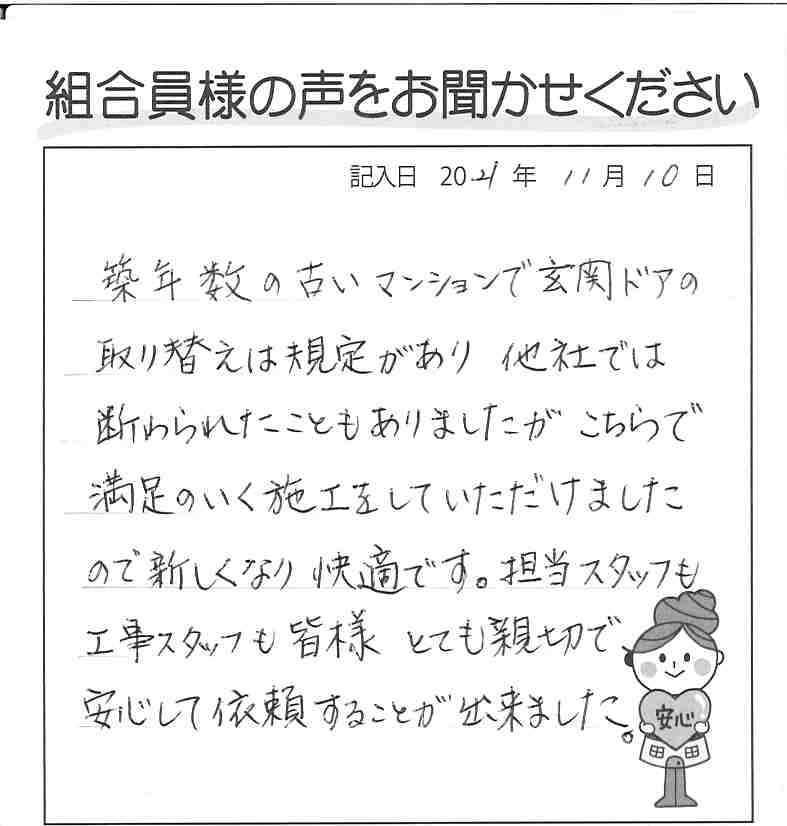 組合員様の声をお聞かせください
記入日 2021年 11月10日
築年数の古いマンションで玄関ドアの
取り替えは規定があり 他社では
断わられたこともありましたが こちらで
満足のいく施工をしていただけました
ので新しくなり 快適です。担当スタッフも
工事スタッフも 皆様 とても親切で
安心して依頼することが出来ました。
安心